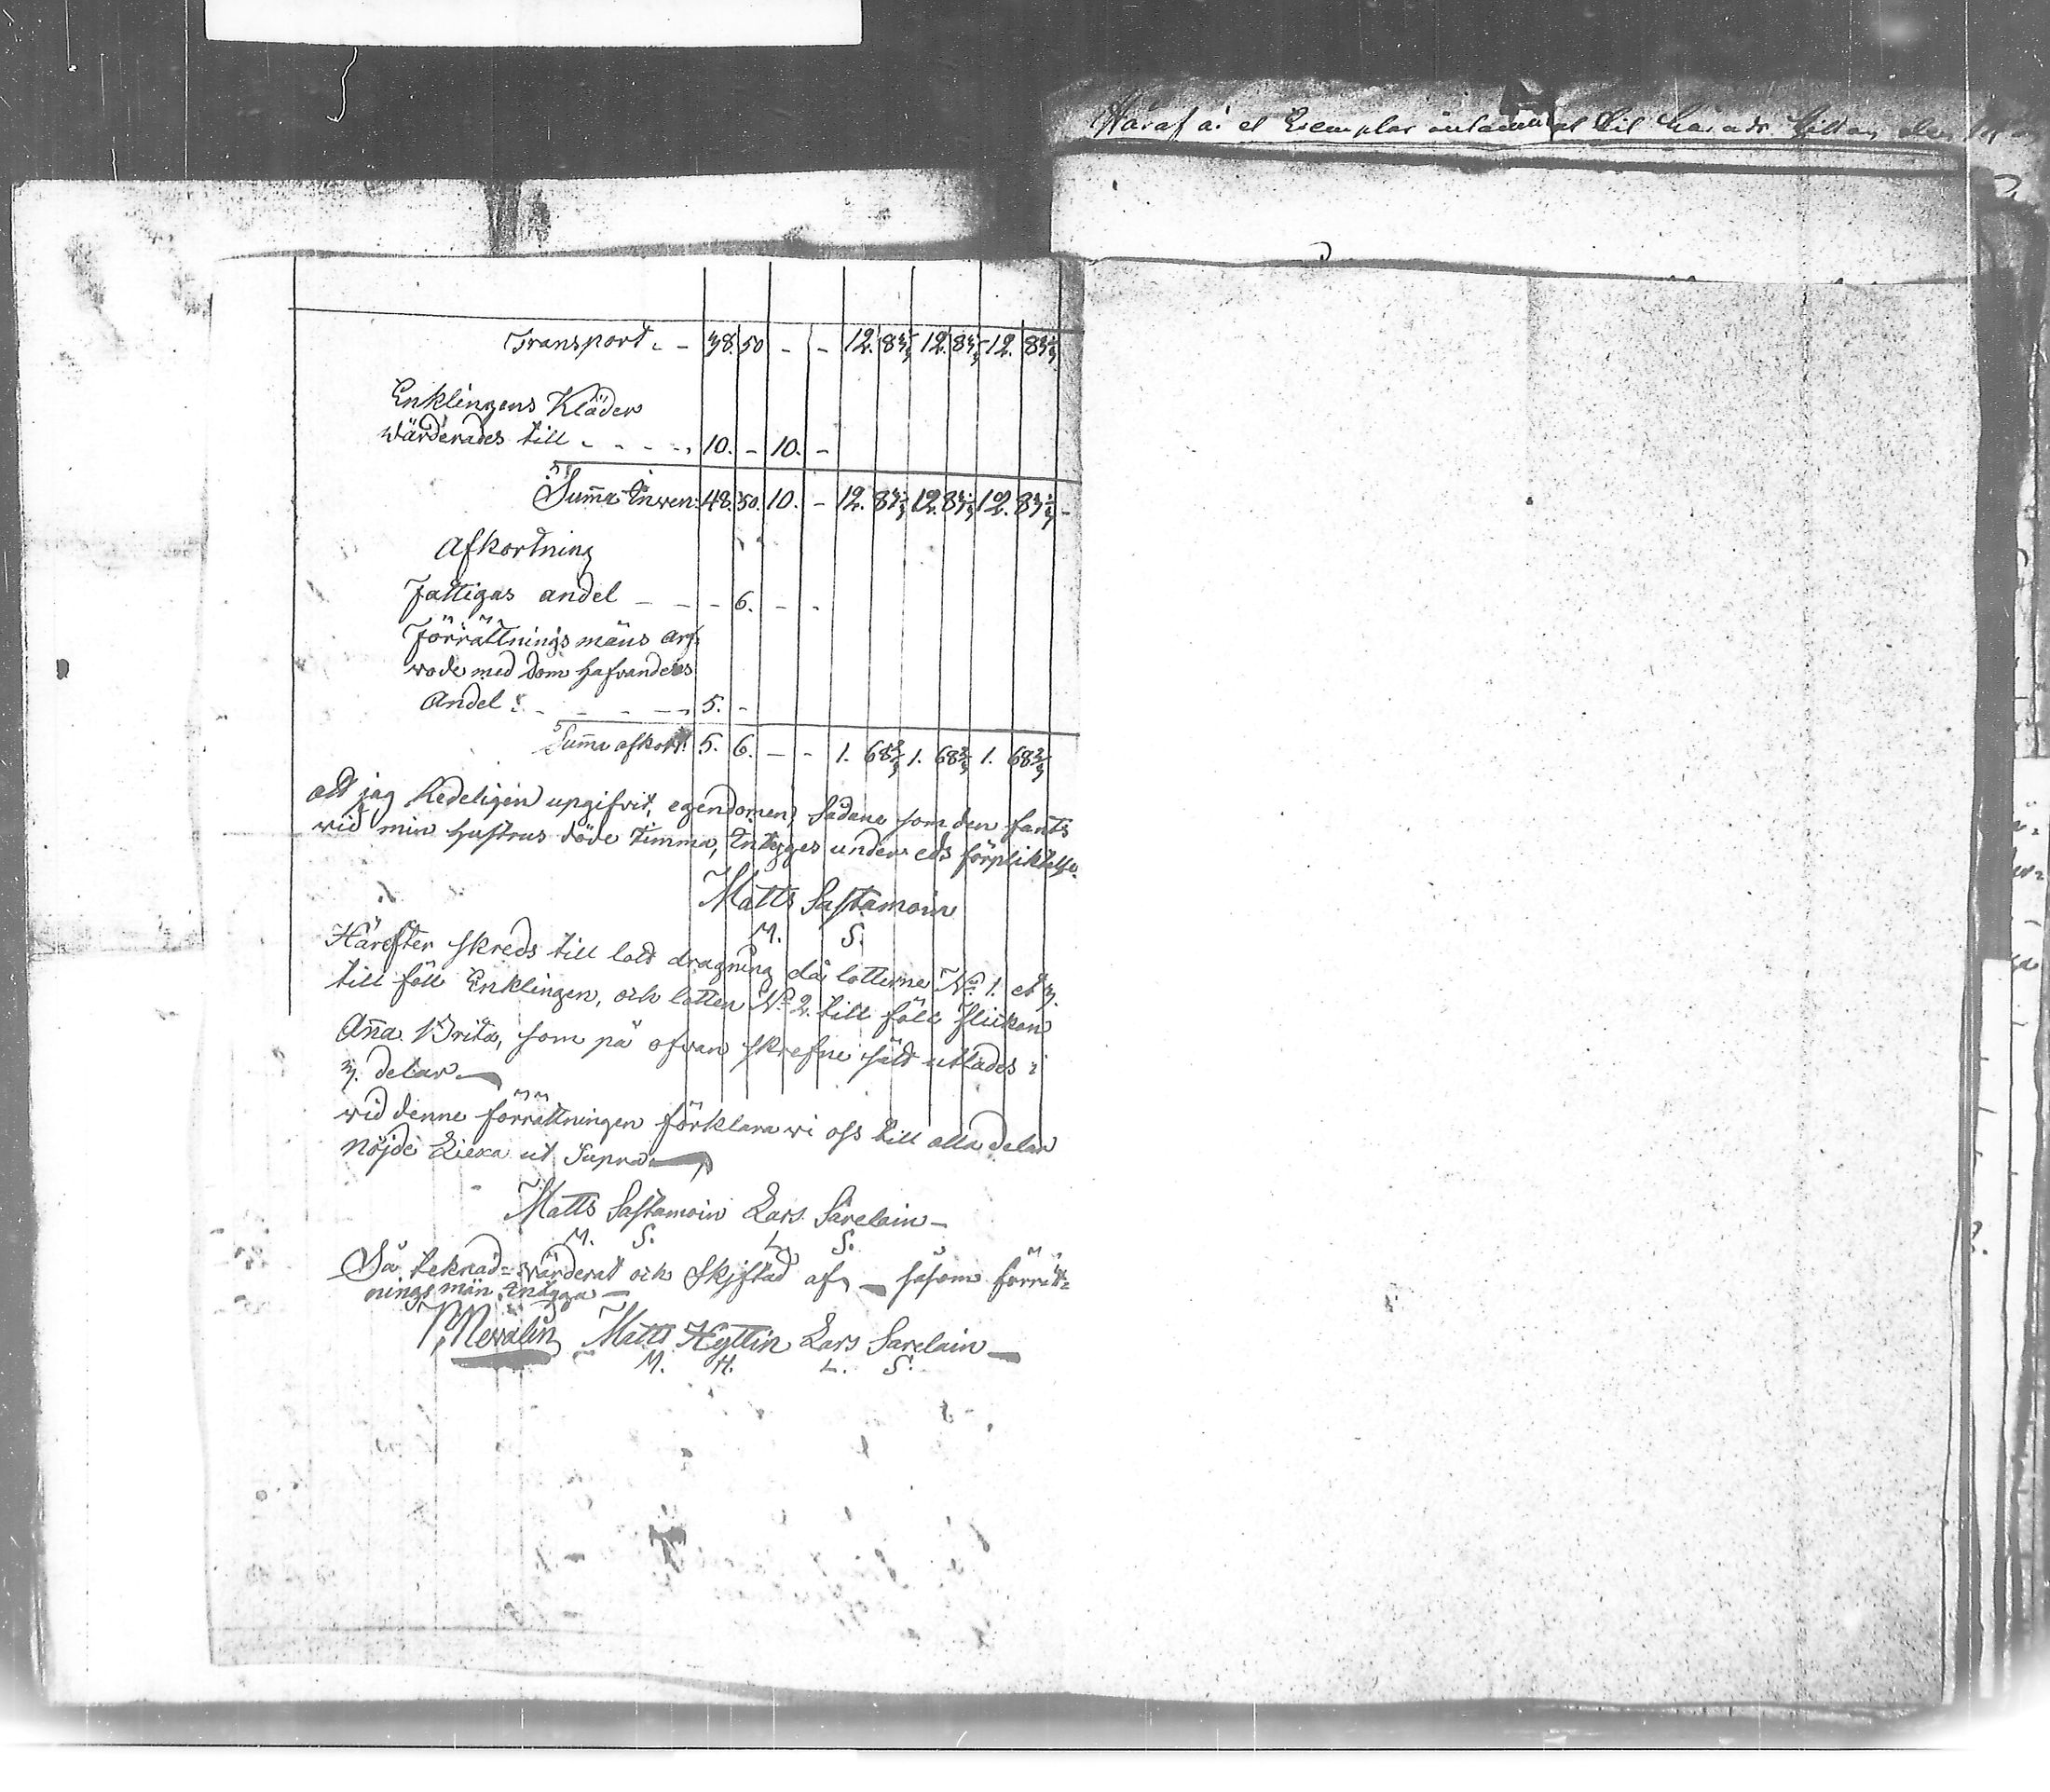 Häraf är et Exemplar inlämnat til Härads Rättan den
Transport. - - 38. 50 - - 12. 83 1/3 12. 83 1/3 12. 83 1/3
Enklingens Kläder
wärderades till - - - - 10. - 10. -
Summa Inven: 48. 50. 10. - 12. 83 1/3 12. 83 1/3 12. 83 1/3 -
Afkortning
Fattigas andel - - - 6. - -
Förrättnings mäns arf-
wode med Dom hafvandes
Andel : - - - - 5. -
Summa afkort: 5. 6. - - 1. 68 2/3 1. 68 2/3 1. 68 2/3
att jag Redeligen upgifvit, egendomen Sådane som den fants
wid min hustrus döde timma, Intyges under eds förpliktelse.
Matts Sastamoin
M. S.
Härefter skreds till lott dragning då lotterne No 1. et 3.
till föll Enklingen, och lotten No 2. till föll flickan
Anna Brita, som på ofvan skrefne sätt utlades i
3. delar
wid denne förrättningen förklara wi oss till alla delar
Nöjde Liexa ut Supra
Matts Sastamoin Lars Särelain -
M. S. L. S.
Så teknad = wärderat och Skiftad af, - såsom förrät=
nings män, Intyga -
Matts Hyttin Lars Sarelain -
M. H. L. S.